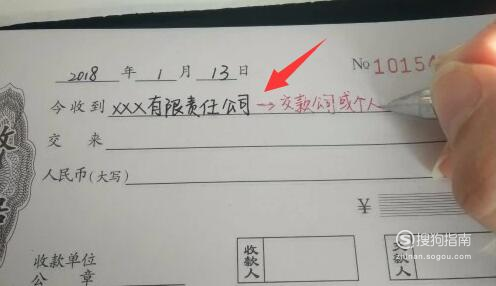 2018 年 1 月 13 日 No 10154
今收到 XXX有限责任公司 → 交款公司或个人
交 来
人民币(大写)
¥
收款单位
公 章
收款人
交款人
搜狗指南
zhinan.sogou.com